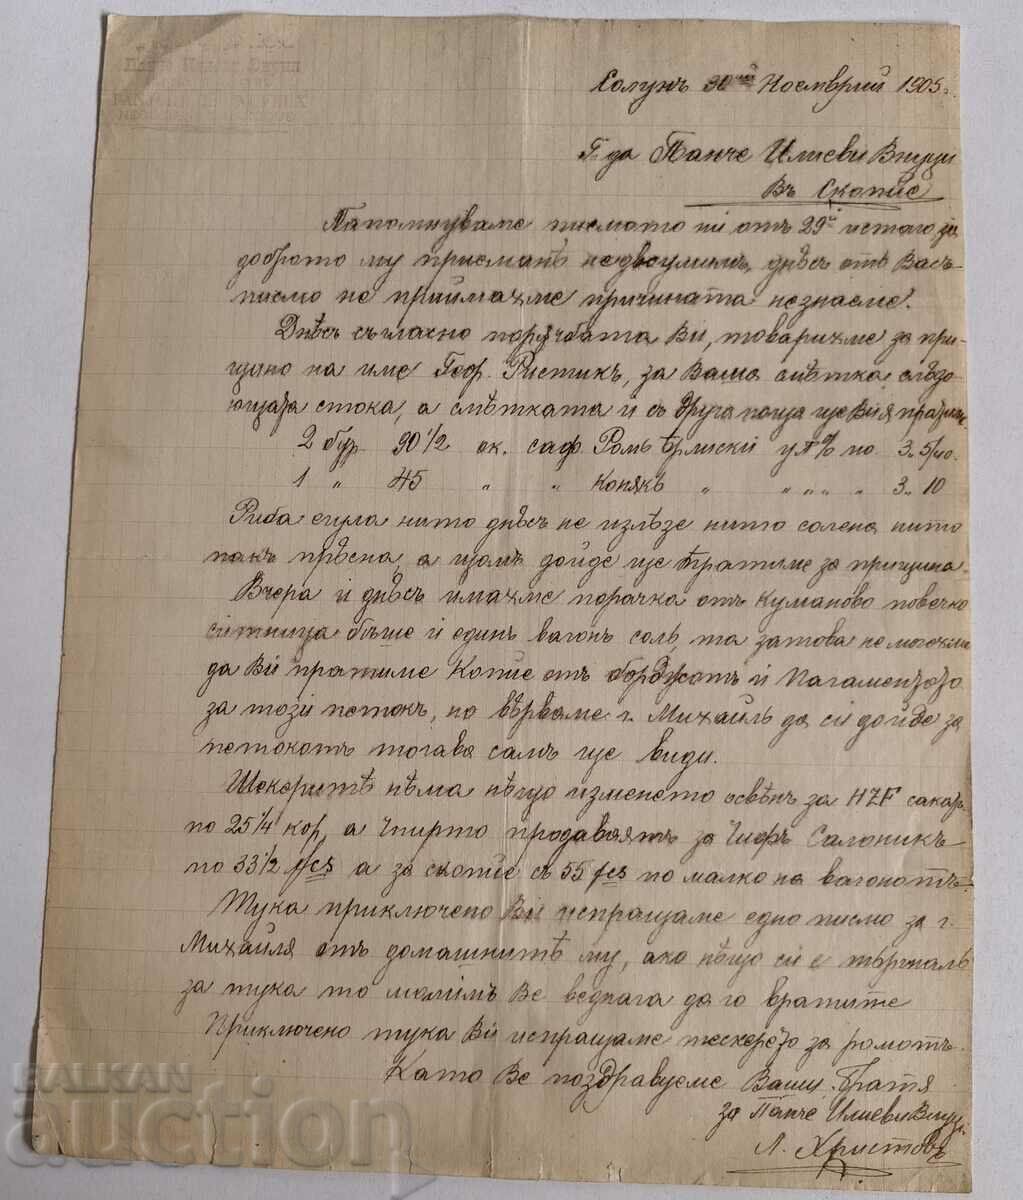 Солунъ 30ий Ноемврий 1905.
Г-да Панче Илиеви Внуци
Въ Скопие
Потполнуваме писмото ни от 29й истаго за
доброто му приемание недвоумимъ, днѣсь отъ Васъ
писмо не приймахме причината незнаеме.
Днѣсъ съгласно порѫчбата Ви, товарихме за при-
щино на име Геор. Ристикъ, за Ваша смѣтка слѣдо-
ющата стока, а смѣтката и съ друга поща ще Ви я пратиме
2 бур 90 1/2 ок. саф. Ромъ по 3. 5/40.
1 " 45 " " Конякъ " " " " " 3. 10
Риба сигла нито днѣсъ не излѣзе нито солена нито
пакъ прѣсна, а щомъ дойде ще пратиме за прищина.
Вчера и днѣсъ имахме порачка отъ Куманово повечко
ситница бѣше и единъ вагонъ соль, та затова неможехме
да Ви пратиме Копие отъ и
за този петокъ, но вѣрваме г. Михаилъ да си дойде за
петокотъ тогава самъ ще види.
Шекеритѣ нѣма нѣщо изменето освѣнъ за HZF сакар.
по 25 1/4 кор, а Спирто продаваятъ за Чифъ Салоникъ
по 33 1/2 fcs а за скопие съ 55 fcs по малко на вагонотъ
Тука приключено Ви испращаме едно писмо за г.
Михаиля отъ домашнитѣ му, ако нѣщо си е търгналъ
за тука то молимъ Ве веднага да го вратите
Приключено тука Ви испращаме тескерето за ромотъ.
Като Ве поздравуеме Ваши Братя
за Панче Илиеви Внуци
Л. Христовъ
BALKAN
auction